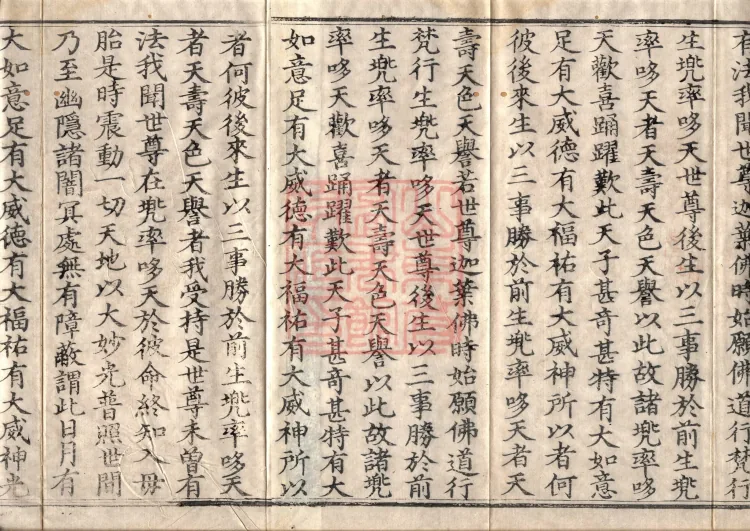 有法我聞世尊迦葉佛時始願佛道行梵行
生兠率哆天世尊後生以三事勝於前生兠
率哆天者天壽天色天譽以此故諸兠率哆
天歡喜踊躍歎此天子甚奇甚特有大如意
足有大威德有大福祐有大威神所以者何
彼後來生以三事勝於前生兠率哆天者天
壽天色天譽若世尊迦葉佛時始願佛道行
梵行生兠率哆天世尊後生以三事勝於前
生兠率哆天者天壽天色天譽以此故諸兠
率哆天歡喜踊躍歎此天子甚奇甚特有大
如意足有大威德有大福祐有大威神所以
者何彼後來生以三事勝於前生兠率哆天
者天壽天色天譽者我受持是世尊未曽有
法我聞世尊在兠率哆天於彼命終知入母
胎是時震動一切天地以大妙光普照世間
乃至幽隱諸闇冥處無有障蔽謂此日月有
大如意足有大威德有大福祐有大威神光